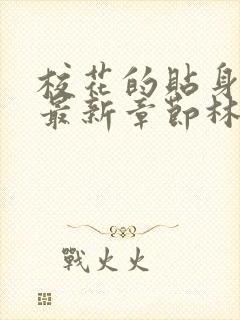 校花的貼身
最新章節林
戰火火